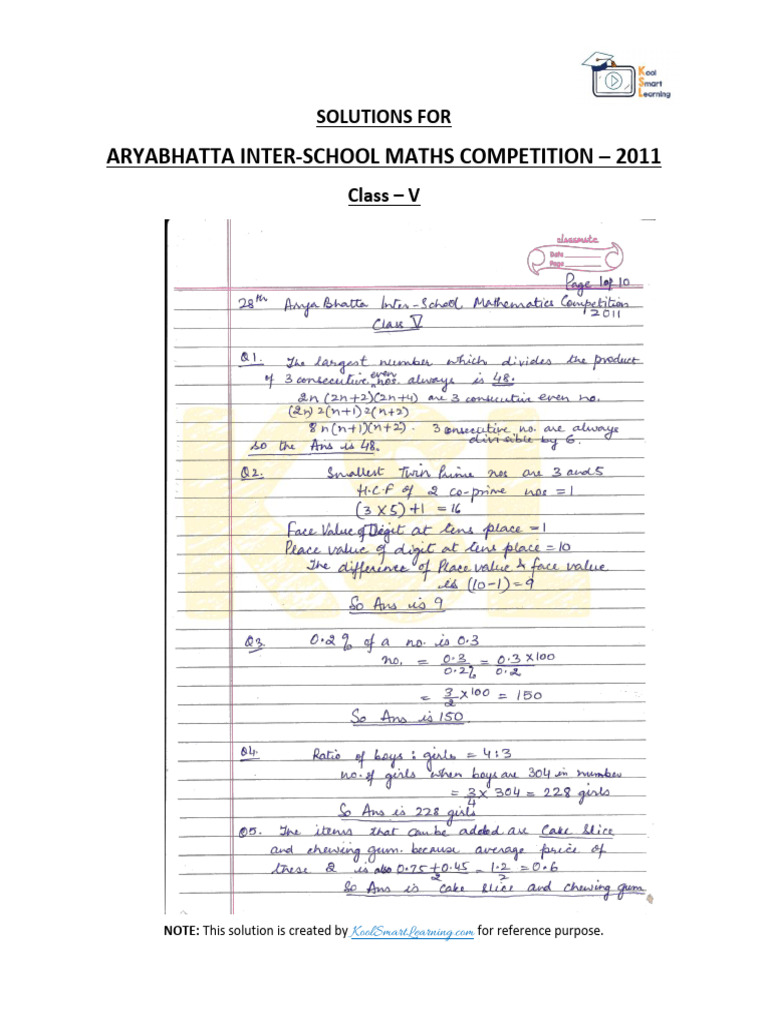 Kool
Smart
Learning
SOLUTIONS FOR
ARYABHATTA INTER-SCHOOL MATHS COMPETITION – 2011
Class – V
classmate
Date
Page
Page 1 of 10
28th Arya Bhatta Inter-School Mathematics Competition
2011
Class V
Q1. The largest number which divides the product
of 3 consecutive even nos. always is 48.
2n (2n+2)(2n+4) are 3 consecutive even no.
(2n) 2(n+1) 2(n+2)
8n(n+1)(n+2). 3 consecutive no. are always
divisible by 6.
So the Ans is 48.
Q2. Smallest Twin Prime nos are 3 and 5
H.C.F of 2 co-prime nos = 1
(3 x 5) + 1 = 16
Face Value of Digit at tens place = 1
Place value of digit at tens place = 10
The difference of Place value & face value
is (10-1) = 9
So Ans is 9
Q3. 0.2% of a no. is 0.3
no. = 0.3/0.2% = 0.3 x 100/0.2
= 3/2 x 100 = 150
So Ans is 150
Q4. Ratio of boys : girls = 4:3
no. of girls when boys are 304 in number
= 3/4 x 304 = 228 girls
So Ans is 228 girls
Q5. The items that can be added are Cake Slice
and chewing gum. because average price of
these 2 is also 0.75+0.45/2 = 1.2/2 = 0.6
So Ans is cake slice and chewing gum
NOTE: This solution is created by KoolSmartLearning.com for reference purpose.
KSL